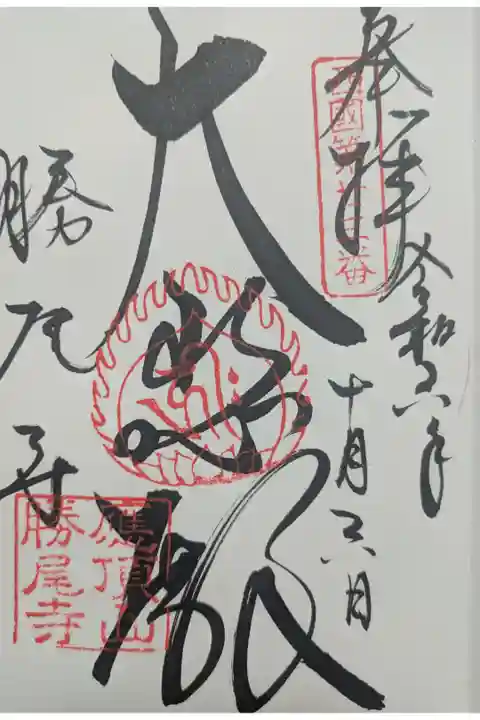 奉拝
西國第廿三番
令和六年
十月六日
大悲殿
勝尾寺
應頂山
勝尾寺